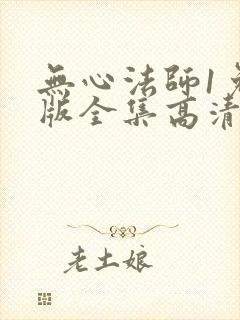 無心法師1
版全集高清
老土娘